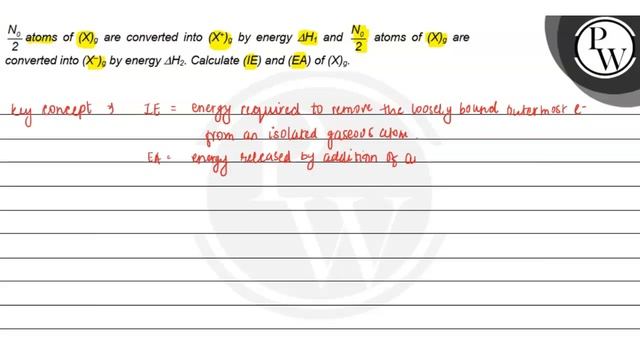 N₀/2 atoms of (X)g are converted into (X⁺)g by energy ΔH₁ and N₀/2 atoms of (X)g are
converted into (X⁻)g by energy ΔH₂. Calculate (IE) and (EA) of (X)g.
P
W
Key concept → IE = energy required to remove the loosely bound outermost e-
from an isolated gaseous atom.
EA = energy released by addition of a